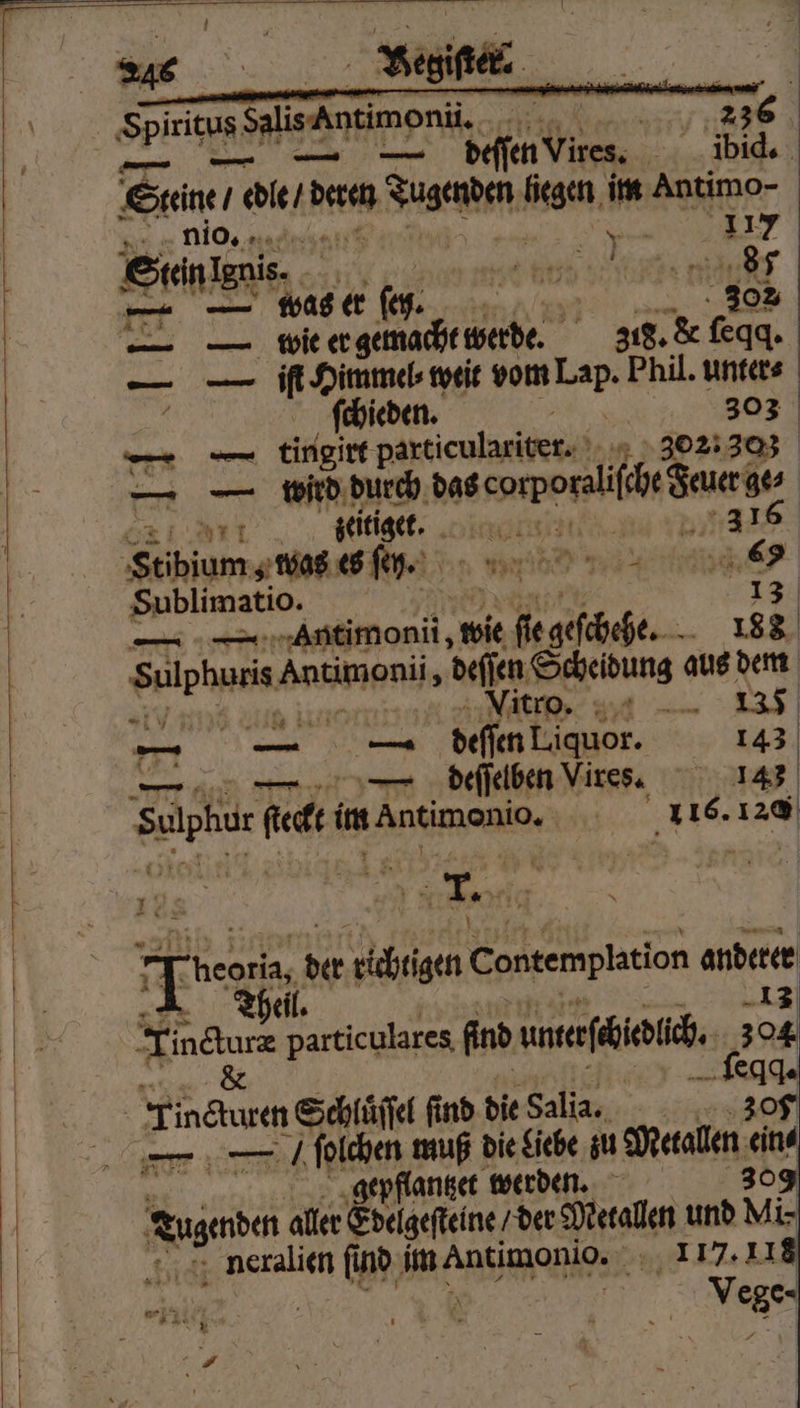 246 Register.
Spiritus Salis Antimonii. 236
— — — — dessen Vires. ibid.
Steine / edle / deren Tugenden liegen im Antimo-
nio. 117
Stein Ignis. 85
— — was er sey. 302
— — wie er gemacht werde. 318. & seqq.
— — ist Himmel- weit vom Lap. Phil. unter-
schieden. 303
— — tingirt particulariter. 302. 303
— — wird durch das corporalische Feuer ge-
zeitiget. 316
Stibium, was es sey. 69
Sublimatio. 13
— — Antimonii, wie sie geschehe. 188
Sulphuris Antimonii, dessen Scheidung aus dem
Vitro. 135
— — — dessen Liquor. 143
— — — desselben Vires. 143
Sulphur steckt im Antimonio. 116. 120
T.
Theoria, der richtigen Contemplation anderer
Theil. 13
Tincturæ particulares sind unterschiedlich. 304
& seqq.
Tincturen Schlüssel sind die Salia. 305
— — / solchen muß die Liebe zu Metallen ein-
gepflantzet werden. 309
Tugenden aller Edelgesteine / der Metallen und Mi-
neralien sind im Antimonio. 117. 118
Vege-